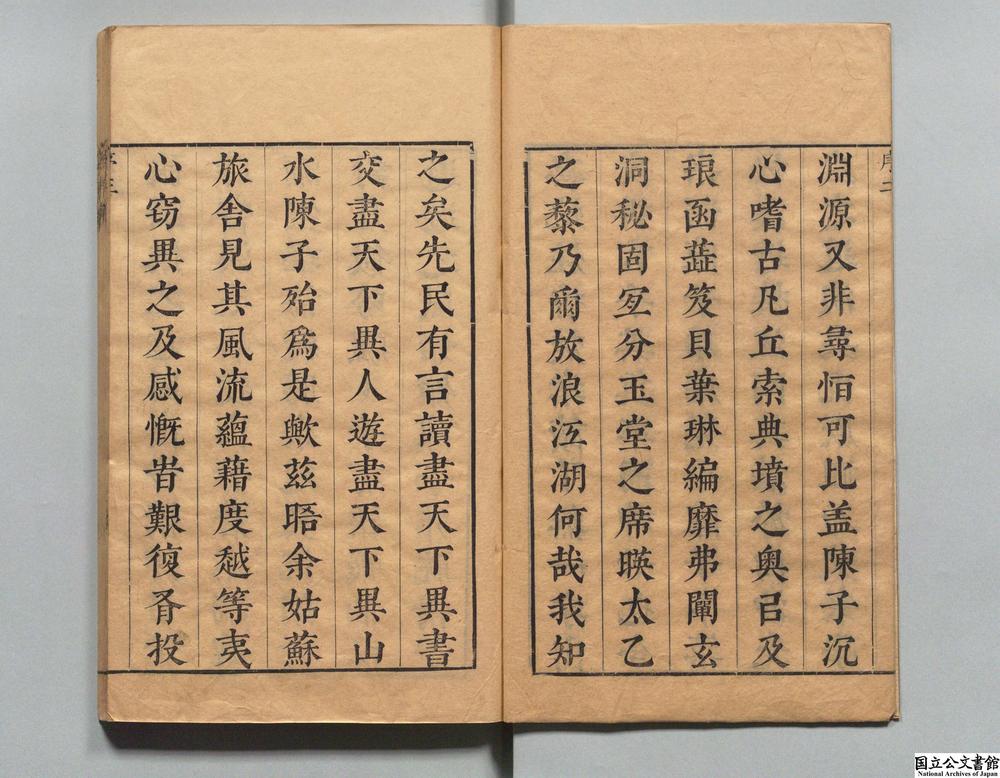 序二
淵源又非尋恒可比盖陳子沉
心嗜古凡丘索典墳之奥㠯及
琅函蕋笈貝葉琳編靡弗闡玄
洞秘固宐分玉堂之席暎太乙
之藜乃爾放浪江湖何哉我知
之矣先民有言讀盡天下異書
交盡天下異人遊盡天下異山
水陳子殆爲是歟兹晤余姑蘇
旅舍見其風流蘊藉度越等夷
心窃異之及感慨昔艱復胥投
序三
国立公文書館
National Archives of Japan